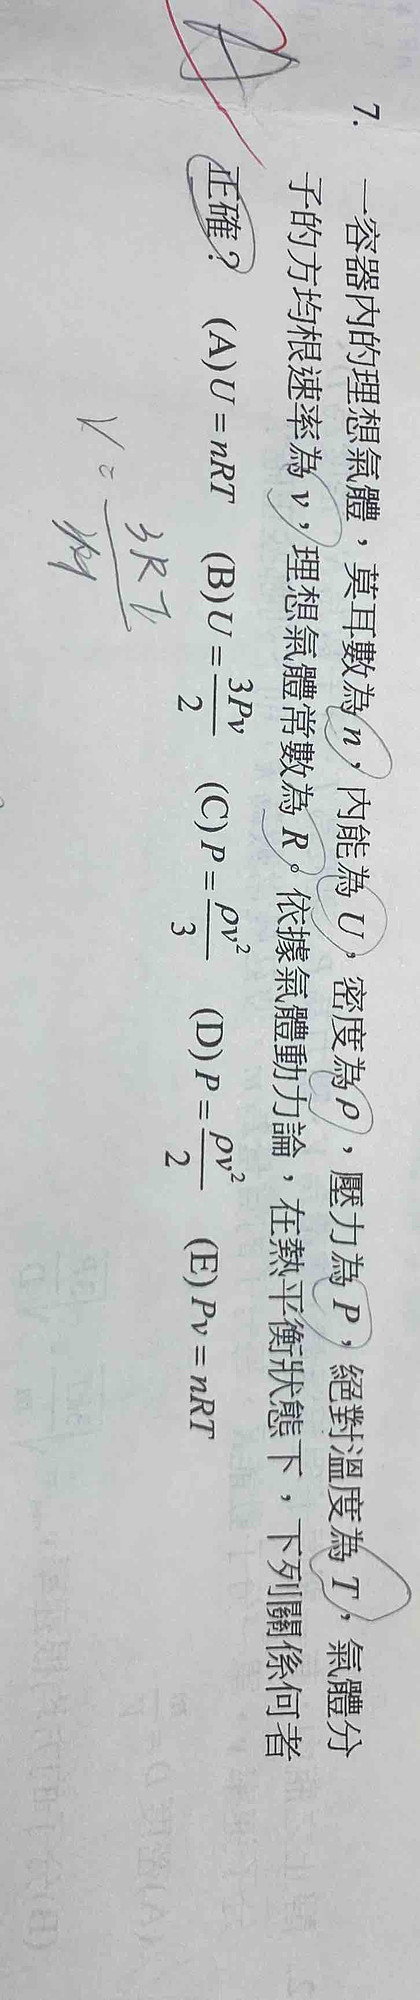 7. 一容器內的理想氣體，莫耳數為 n，內能為 U，密度為 ρ，壓力為 P，絕對溫度為 T，氣體分
子的方均根速率為 v，理想氣體常數為 R。依據氣體動力論，在熱平衡狀態下，下列關係何者
正確？ (A) U = nRT (B) U = 3Pv/2 (C) P = ρv²/3 (D) P = ρv²/2 (E) Pv = nRT
V = 3RT